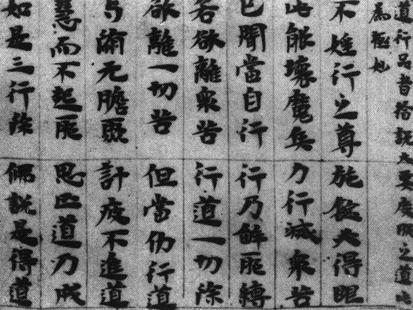 道行品者指說大要度脫之道此
為極妙
不婬行之尊 能斂夫得眼
此能壞魔兵 力行滅眾苦
已聞當自行 行乃解邪縛
若欲離眾苦 行道一切除
欲離一切苦 但當仂行道
与 元瞻 計疲不進道
慧而不起邪 思正道乃成
如是三行除 佛說是得道